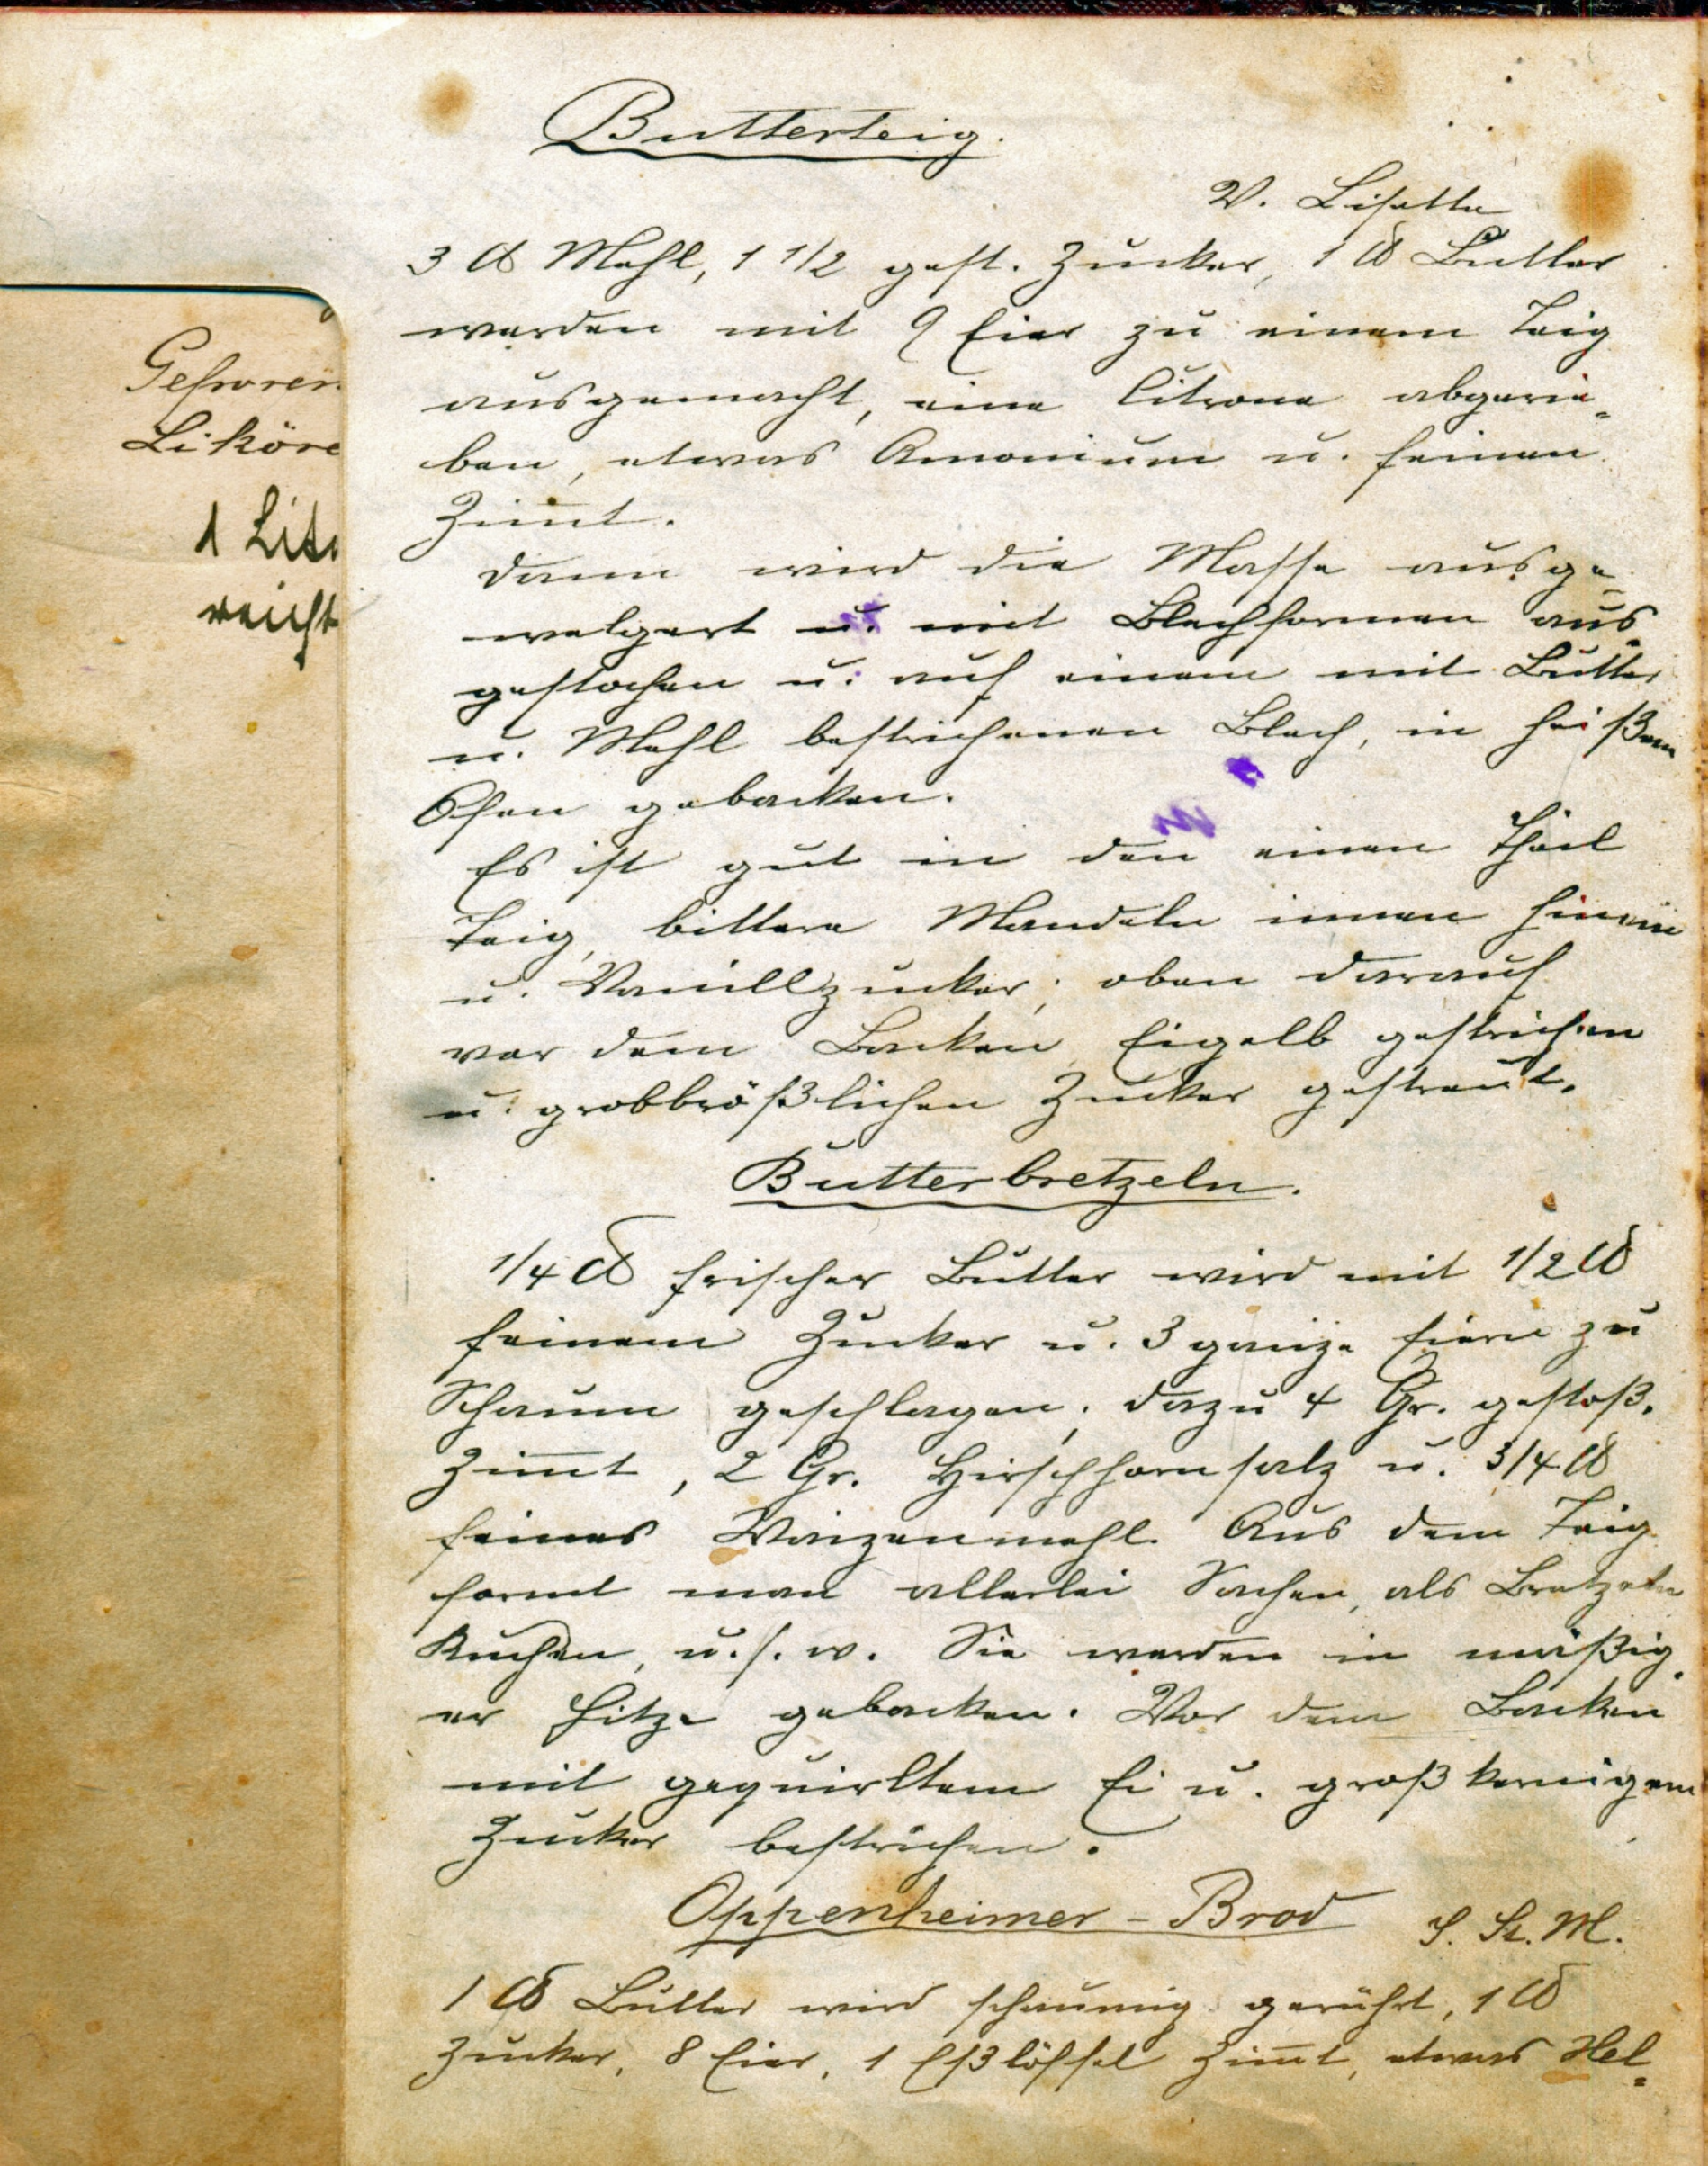 Gefroren
Liköre
1 Lite
reicht
Butterteig.
V. Lisette
3 ℔ Mehl, 1 1/2 gest. Zucker, 1 ℔ Butter
werden mit 9 Eier zu einem Teig
ausgemacht, eine Citrone abgerie-
ben, etwas Amonium u. feinen
Zimt.
Dann wird die Masse ausge-
welgert u. mit Blechformen aus
gestochen u. auf einem mit Butter
u. Mehl bestrichenen Blech, in heißem
Ofen gebacken.
Es ist gut in den einen Theil
Teig, bittere Mandeln innen hinein
u. Vanillzucker; oben darauf
vor dem Backen Eigelb gestrichen
u. grobbrößlichen Zucker gestreut.
Butterbretzeln.
1/4 ℔ frischer Butter wird mit 1/2 ℔
feinem Zucker u. 3 ganze Eiern zu
Schaum geschlagen, dazu 4 Gr. gestoß.
Zimt, 2 Gr. Hirschhornsalz u. 3/4 ℔
feines Waizenmehl. Aus dem Teig
formt man allerlei Sachen, als Bretzeln
Kuchen, u.s.w. Sie werden in mäßig-
er Hitze gebacken. Vor dem Backen
mit gequirltem Ei u. großkernigem
Zucker bestrichen.
Oppenheimer-Brod
1 ℔ Butter wird schaumig gerührt, 1 ℔
Zucker, 8 Eier, 1 Eßlöffel Zimt, etwas